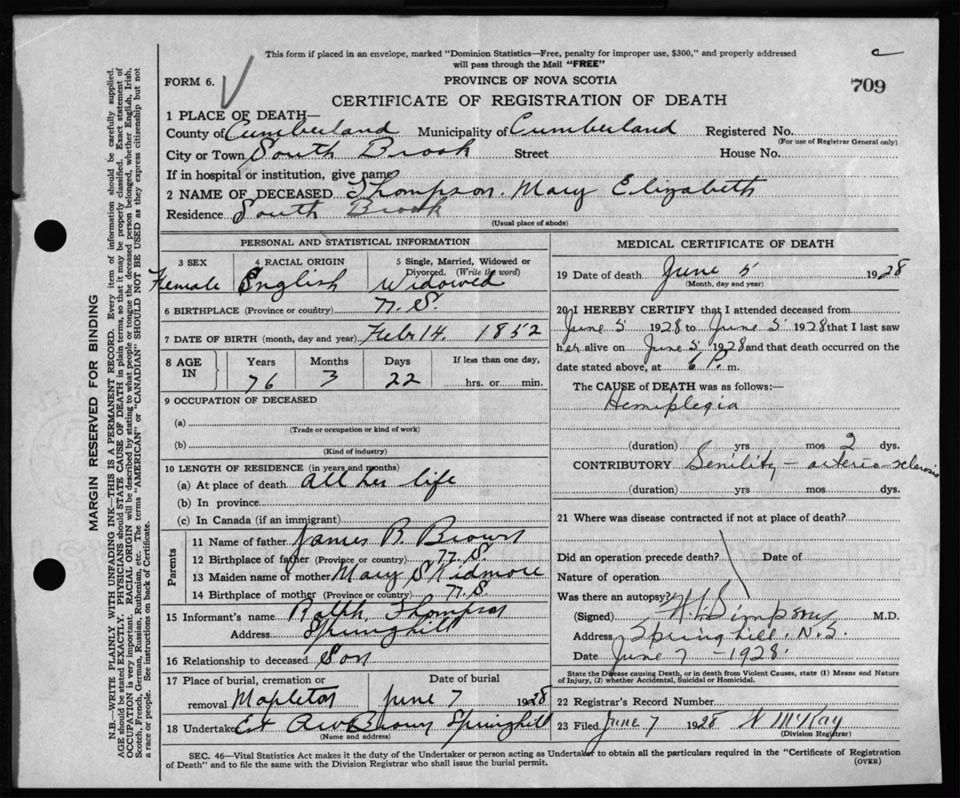 This form if placed in an envelope, marked "Dominion Statistics—Free, penalty for improper use, $300," and properly addressed
will pass through the Mail "FREE"
FORM 6.
PROVINCE OF NOVA SCOTIA
709
CERTIFICATE OF REGISTRATION OF DEATH
1 PLACE OF DEATH—
County of Cumberland Municipality of Cumberland Registered No.
(For use of Registrar General only)
City or Town South Brook Street House No.
If in hospital or institution, give name
2 NAME OF DECEASED Thompson. Mary Elizabeth
Residence South Brook
(Usual place of abode)
MARGIN RESERVED FOR BINDING
N.B.—WRITE PLAINLY WITH UNFADING INK—THIS IS A PERMANENT RECORD. Every item of information should be carefully supplied.
AGE should be stated EXACTLY. PHYSICIANS should STATE CAUSE OF DEATH in plain terms, so that it may be properly classified. Exact statement of
OCCUPATION is very important. RACIAL ORIGIN will be described by stating to what people or tongue the deceased person belonged, whether English, Irish,
Scotch, French, German, Russian, Ruthenian, etc. The terms "AMERICAN" or "CANADIAN" SHOULD NOT BE USED as they express citizenship but not
a race or people. See instructions on back of Certificate.
PERSONAL AND STATISTICAL INFORMATION
3 SEX 4 RACIAL ORIGIN 5 Single, Married, Widowed or
Divorced. (Write the word)
Female English Widowed
6 BIRTHPLACE (Province or country) N.S.
7 DATE OF BIRTH (month, day and year) Feb 14. 1852
8 AGE IN Years Months Days If less than one day,
76 3 22 hrs. or min.
9 OCCUPATION OF DECEASED
(a)
(Trade or occupation or kind of work)
(b)
(Kind of industry)
10 LENGTH OF RESIDENCE (in years and months)
(a) At place of death all her life
(b) In province
(c) In Canada (if an immigrant)
Parents
11 Name of father James B. Brown
12 Birthplace of father (Province or country) N.S
13 Maiden name of mother Mary Skidmore
14 Birthplace of mother (Province or country) N.S.
15 Informant's name Ralph Thompson
Address Springhill
16 Relationship to deceased Son
17 Place of burial, cremation or Date of burial
removal Mapleton June 7 1928
18 Undertaker Brown Springhill
(Name and address)
MEDICAL CERTIFICATE OF DEATH
19 Date of death June 5 1928
(Month, day and year)
20 I HEREBY CERTIFY that I attended deceased from
June 5 1928 to June 5 1928 that I last saw
her alive on June 5 1928 and that death occurred on the
date stated above, at 6 P. m.
The CAUSE of DEATH was as follows:—
Hemiplegia
(duration) yrs mos 2 dys.
CONTRIBUTORY Senility - arterio-sclerosis
(duration) yrs mos dys.
21 Where was disease contracted if not at place of death?
Did an operation precede death? Date of
Nature of operation
Was there an autopsy?
(Signed) Simpson M.D.
Address Springhill, N.S.
Date June 7 - 1928.
State the Disease causing Death, or in death from Violent Causes, state (1) Means and Nature
of Injury, (2) whether Accidental, Suicidal or Homicidal.
22 Registrar's Record Number
23 Filed June 7 1928 N McKay
(Division Registrar)
SEC. 46—Vital Statistics Act makes it the duty of the Undertaker or person acting as Undertaker to obtain all the particulars required in the "Certificate of Registration
of Death" and to file the same with the Division Registrar who shall issue the burial permit.
(OVER)